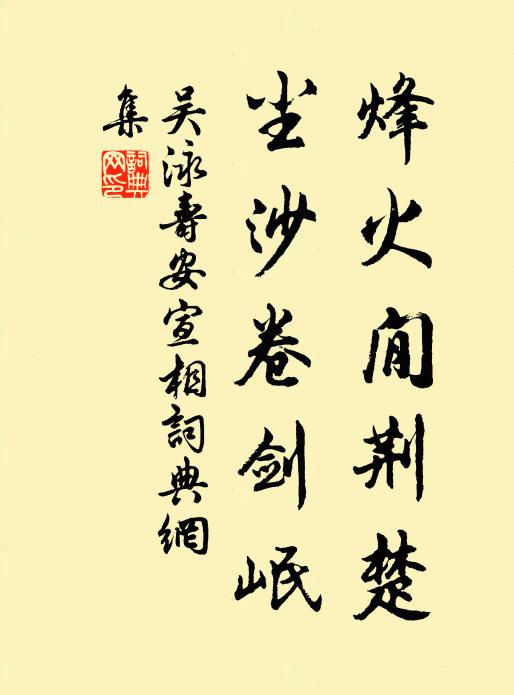 烽火间荆楚
尘沙卷剑岷
吴泳寿安宣相詞典網
集
詞典网印